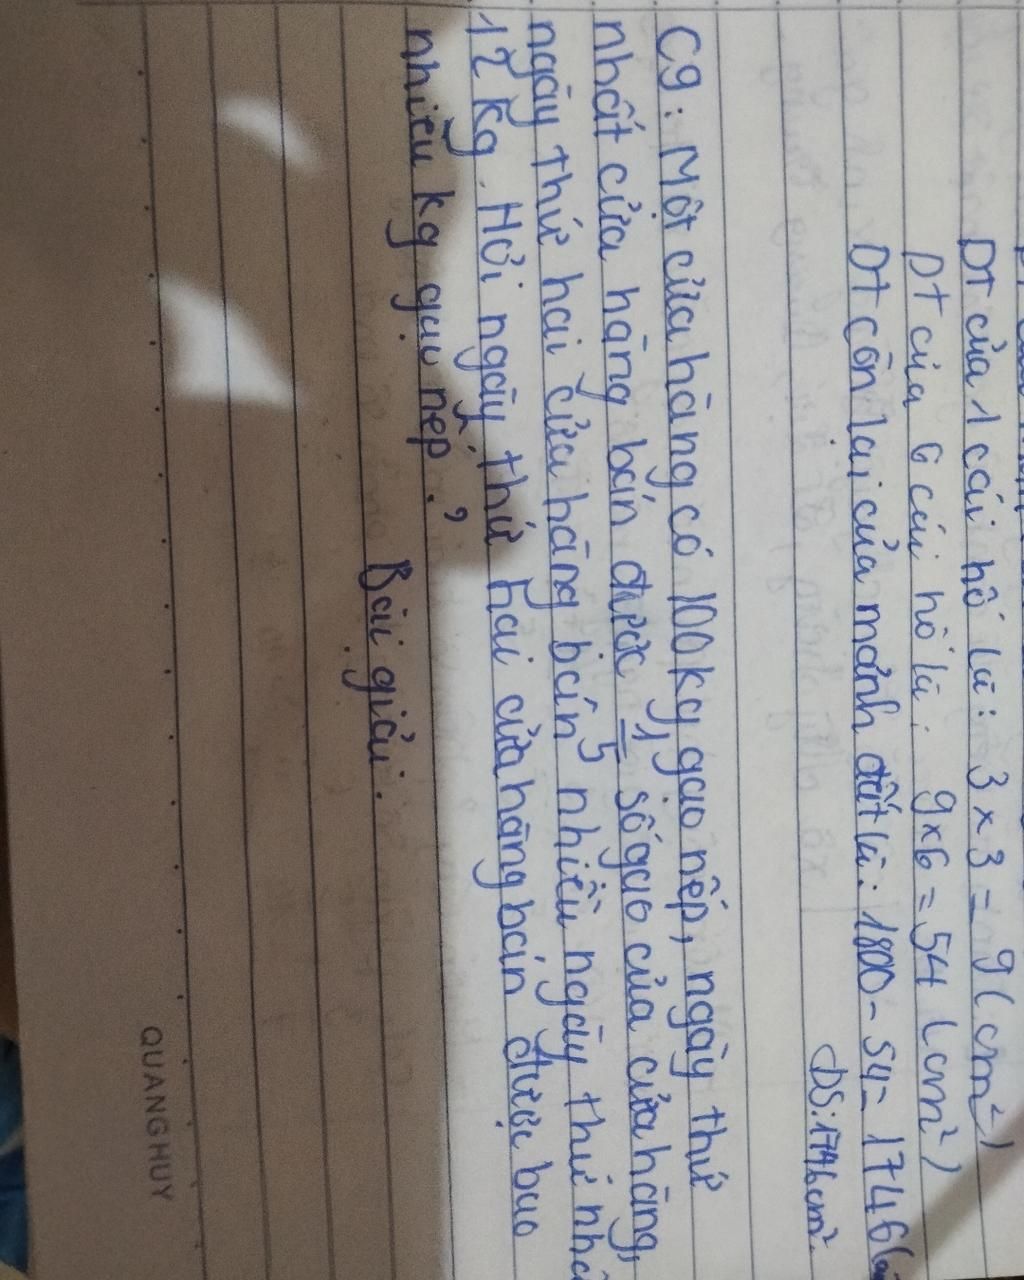 DT của 1 cái hố là: 3 x 3 = 9 (cm²)
DT của 6 cái hố là: 9x6 = 54 (cm²)
DT còn lại của mảnh đất là: 1800 - 54 = 1746 (
ĐS: 1746cm².
C9: Một cửa hàng có 100kg gạo nếp, ngày thứ
nhất cửa hàng bán được 1/5 số gạo của cửa hàng,
ngày thứ hai cửa hàng bán nhiều ngày thứ nhấ
12 kg. Hỏi ngày thứ hai cửa hàng bán được bao
nhiêu kg gạo nếp?
Bài giải.
QUANG HUY